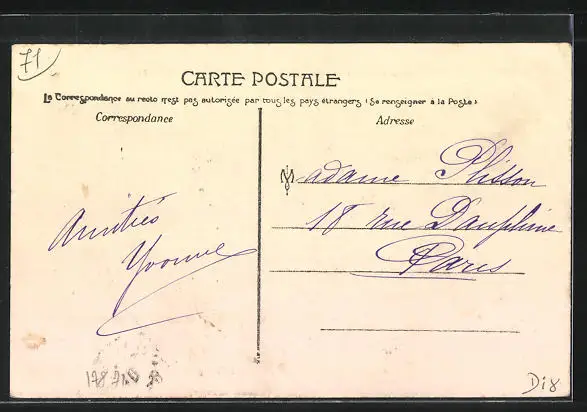 71
CARTE POSTALE
La Correspondance au recto n'est pas autorisée par tous les pays étrangers (Se renseigner à la Poste)
Correspondance
Adresse
Madame Plisson
18 rue Dauphine
Paris
Amitiés
Yvonne
178710
D18